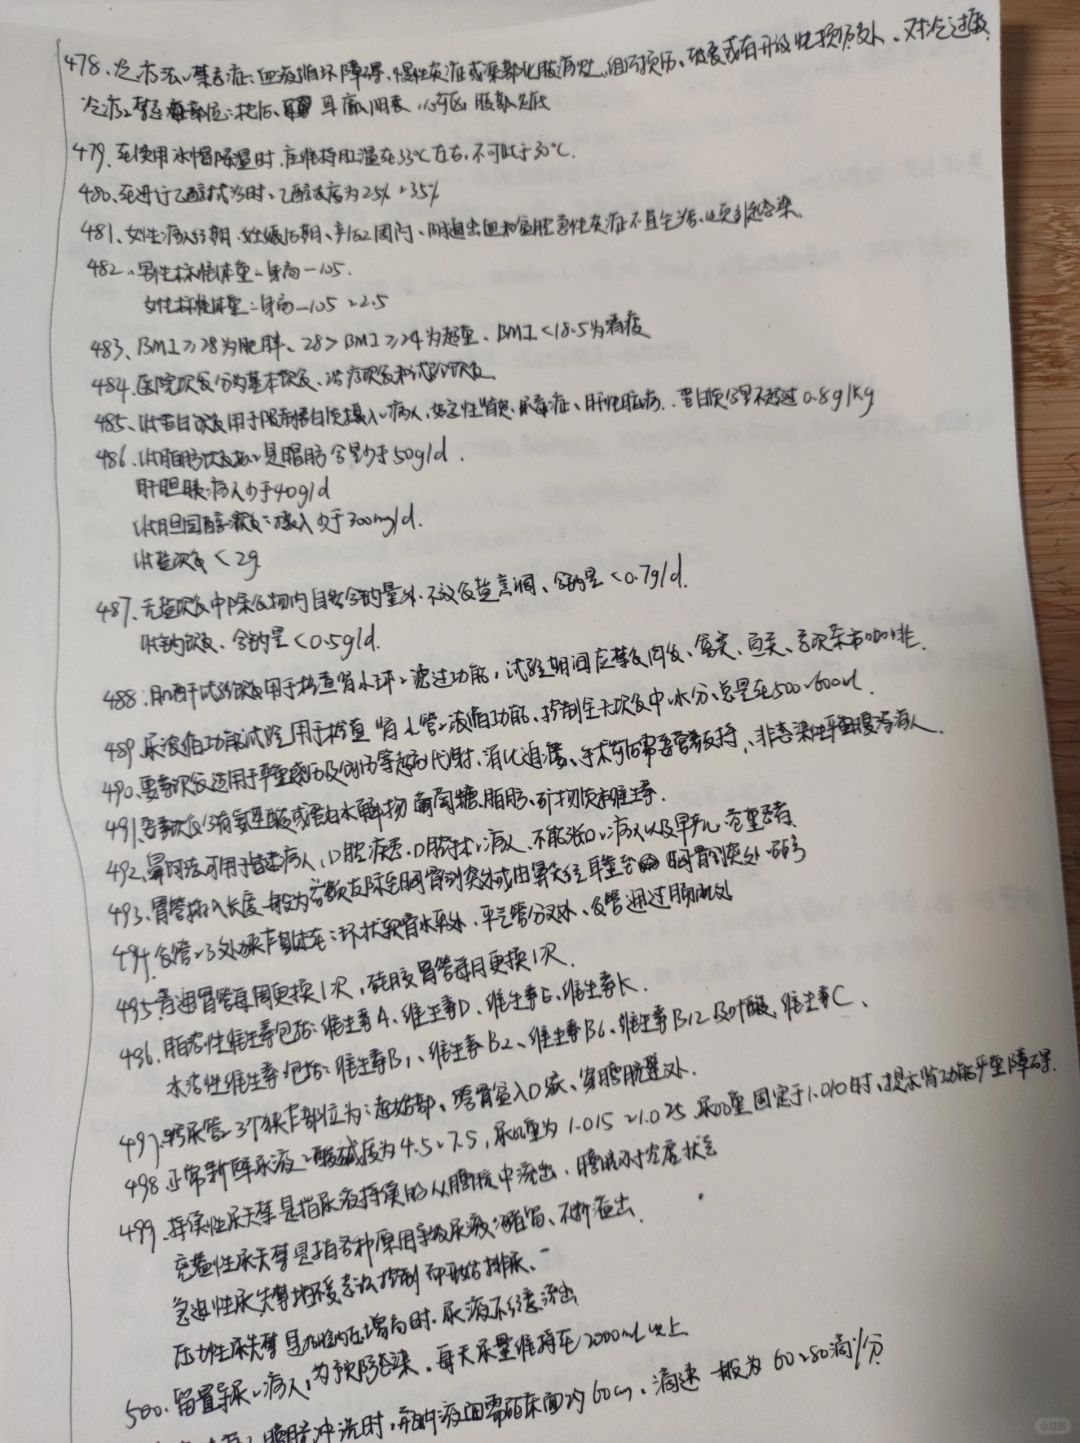 478、冷疗法、禁忌症:血液循环障碍、慢性炎症或深部化脓病灶、组织损伤、破裂或有开放性损伤处、对冷过敏
冷疗、禁忌部位:枕后、耳廓、阴囊、心前区、腹部、足底
479、在使用冰帽降温时、应维持肛温在33℃左右、不可低于30℃.
480、在进行乙醇拭浴时、乙醇浓度为25%~35%
481、女性病人经期、妊娠后期、产后2周内、阴道出血和盆腔急性炎症不宜坐浴、以免引起感染、
482、男性标准体重=身高-105.
女性标准体重=身高-105-2.5
483、BMI≥28为肥胖、28>BMI≥24为超重、BMI<18.5为消瘦
484、医院饮食分为基本饮食、治疗饮食和试验饮食
485、低蛋白饮食用于限制蛋白质摄入、病人、如急性肾炎、尿毒症、肝性脑病、蛋白质含量不超过0.8g/kg
486、低脂肪饮食、是脂肪含量少于50g/d.
肝胆胰病人少于40g/d
低胆固醇饮食:摄入少于300mg/d.
低盐饮食<2g
487、无盐饮食中除食物内自然含钠量外、不放食盐烹调、含钠量<0.7g/d.
低钠饮食、含钠量<0.5g/d.
488、肌酐试验饮食用于检查肾小球、滤过功能,试验期间应禁食肉类、禽类、鱼类、忌饮茶和咖啡.
489、尿浓缩功能试验用于检查肾小管、浓缩功能、控制全天饮食中水分、总量在500~600ml.
490、要素饮食适用于严重感染及创伤等超高代谢、消化道瘘、手术前后需营养支持、非感染性严重腹泻病人
491、要素饮食含有氨基酸或蛋白水解物 葡萄糖、脂肪、矿物质和维生素.
492、鼻饲法可用于昏迷病人、口腔疾患、口腔手术、病人、不能张口、病人以及早产儿、危重患者
493、胃管插入长度一般为前额发际至胸骨剑突处或由鼻尖经耳垂至胸骨剑突处
494、食管、3处狭窄其在:环状软骨水平处、平气管分叉处、食管通过膈肌处
495、普通胃管每周更换1次,硅胶胃管每月更换1次.
496、脂溶性维生素包括:维生素A、维生素D、维生素E、维生素K.
水溶性维生素包括:维生素B1、维生素B2、维生素B6、维生素B12及叶酸、维生素C、
497、输尿管、3个狭窄部位为:起始部、跨骨盆入口缘、穿膀胱壁处.
498、正常新鲜尿液、酸碱度为4.5~7.5,尿比重为1.015~1.025.尿比重固定于1.010时、提示肾功能严重障碍.
499、持续性尿失禁是指尿液持续的从膀胱中流出、膀胱处于空虚状态
充盈性尿失禁是指各种原因导致尿液潴留、不断溢出.
急迫性尿失禁指不受意识控制而开始排尿、
压力性尿失禁是指腹内压增高时、尿液不经意流出
500、留置导尿、病人,为预防感染、每天尿量维持在2000ml以上
膀胱冲洗时,瓶内液面需距床面约60cm、滴速一般为60~80滴/分